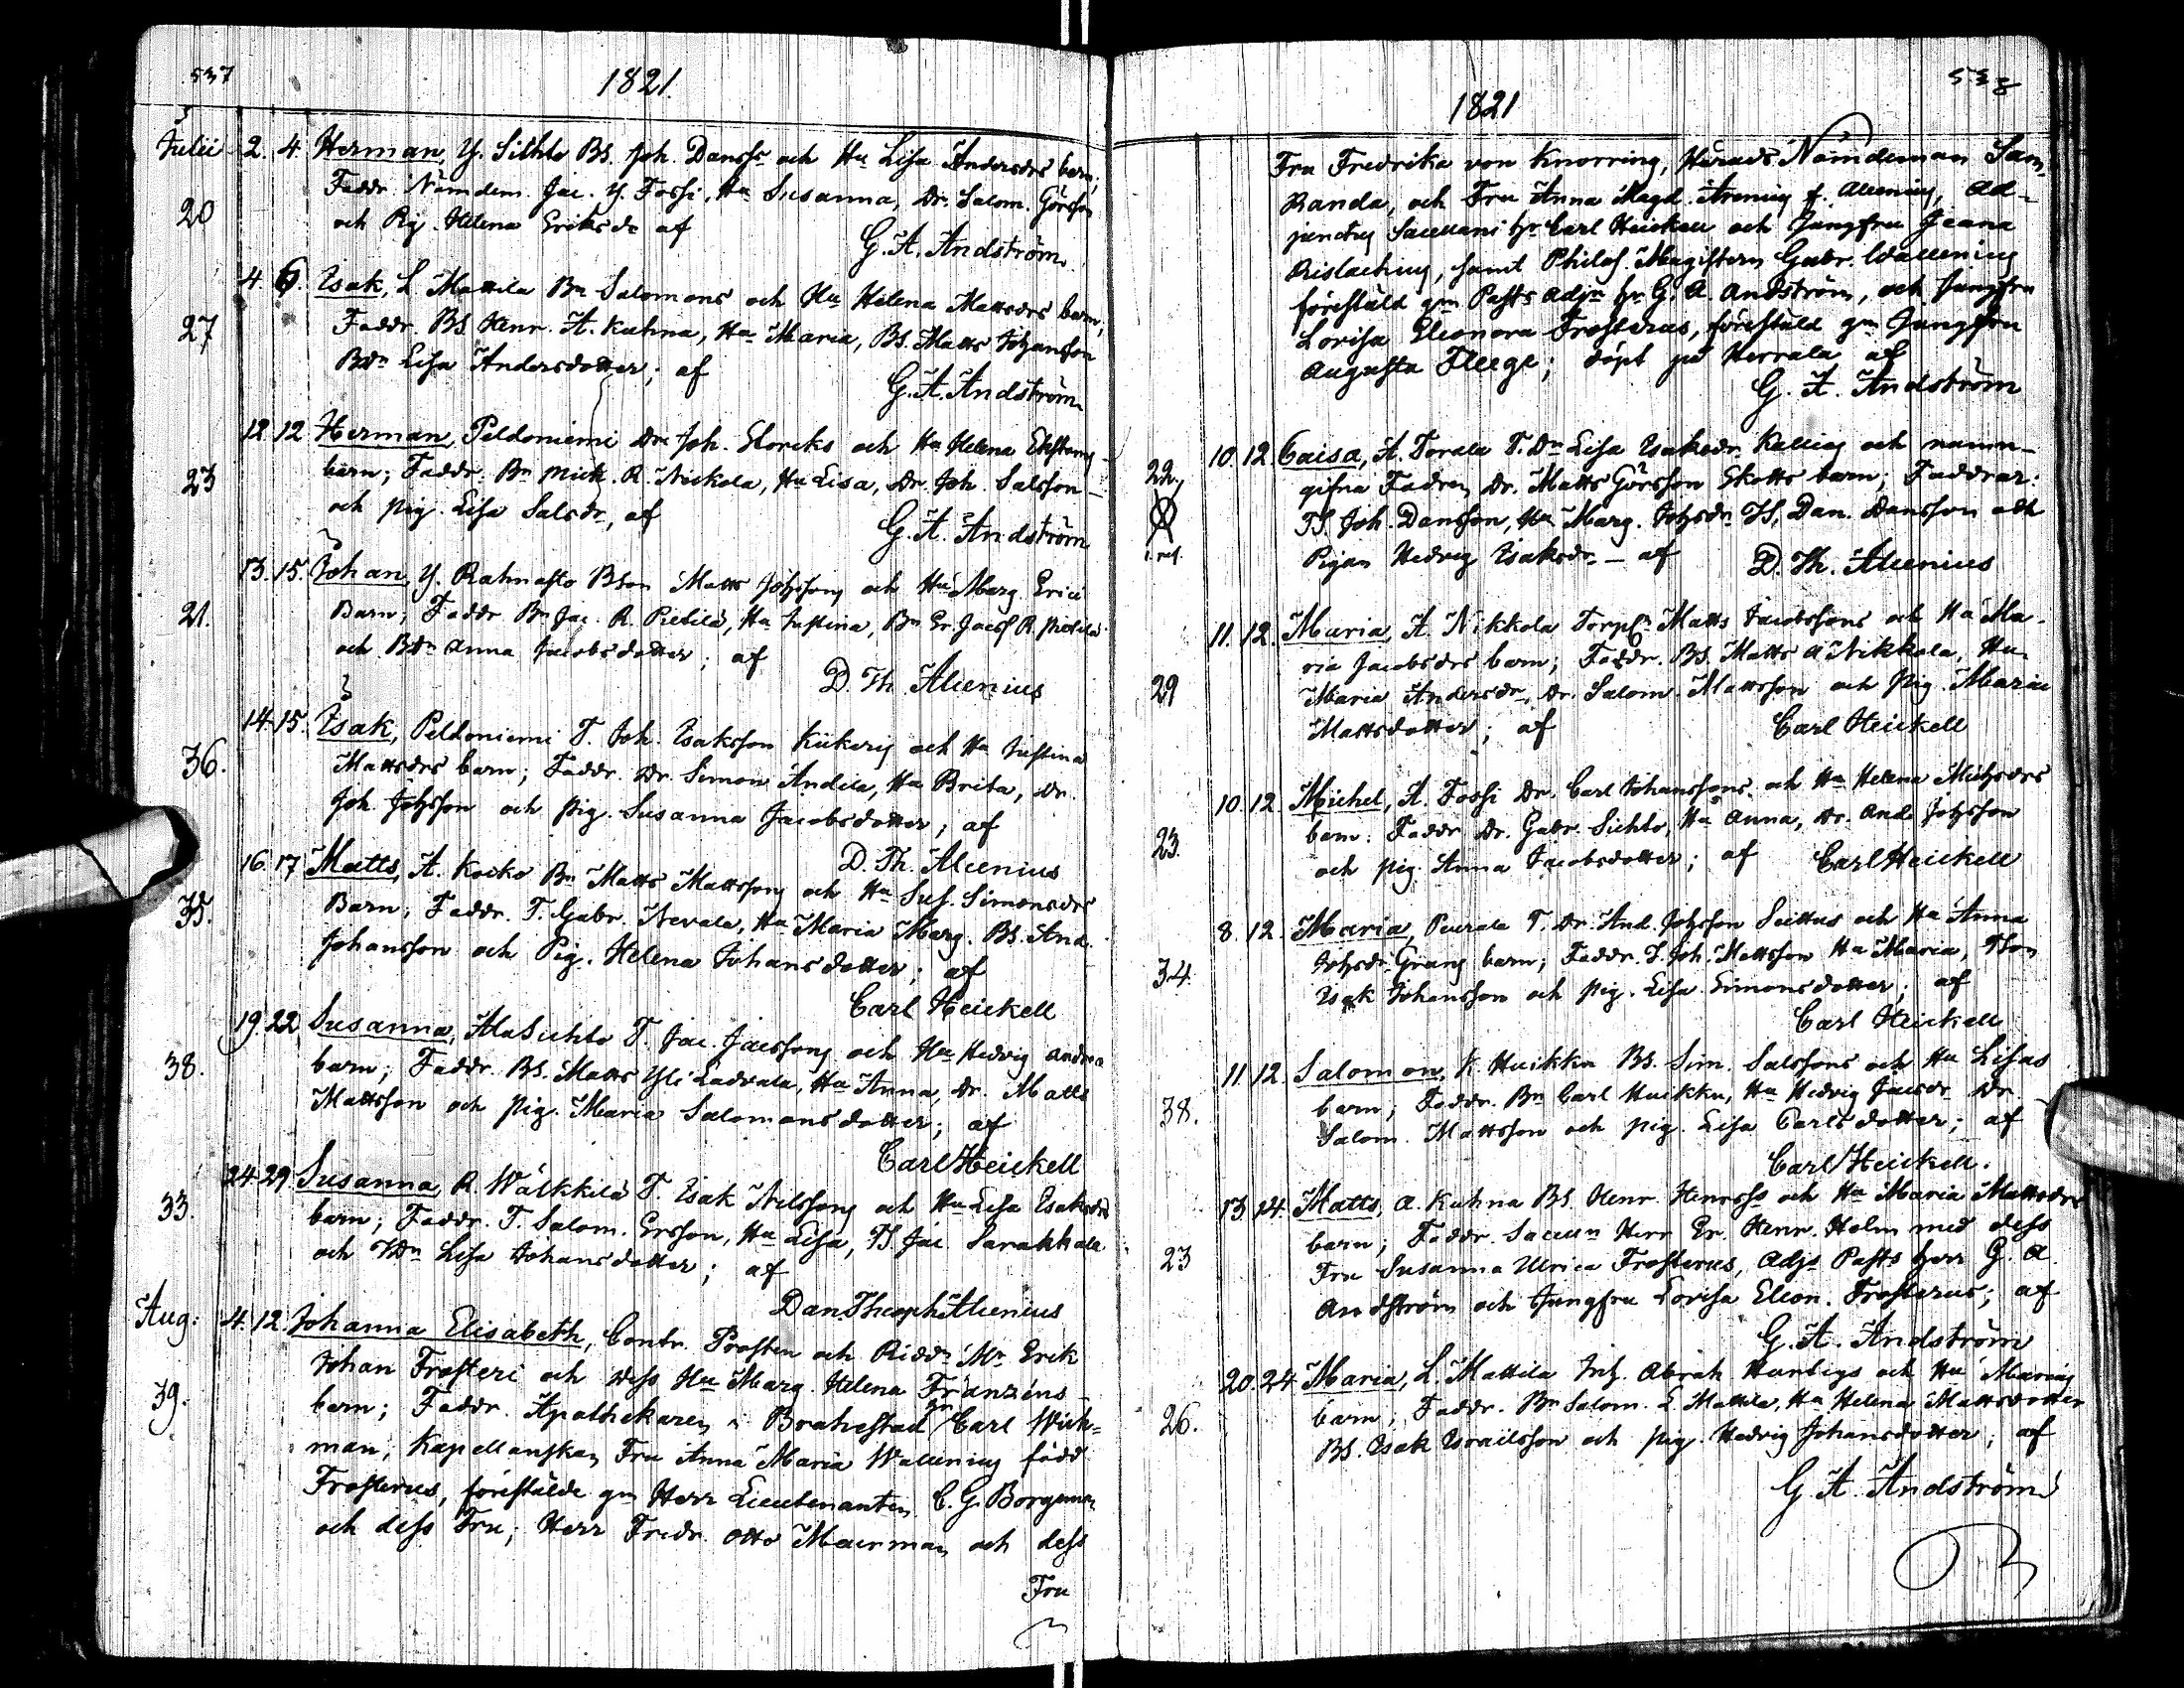 537
1821.
Julii 2. 4. Herman, Y. Sihto BS. Joh. Danss: och Hu Lisa Andersdrs barn;
Faddr. Nämdem. Jac. Y. Fossi, Hu Susanna, Dr. Salom. Görsson
20
och Pig. Helena Eriksdr af
G. A. Andström.
4. 6. Isak, L. Mattila Bn Salomons och Hu Helena Mattsdrs barn,
Faddr. BS. Henr. A. Kuhna, Hu Maria, BS. Matts Johansson
27
Bdn Lisa Andersdotter; af
G. A. Andström
12. 12. Herman, Peldoniemi Dr. Joh. Storcks och Hu Helena
barn; Faddr. Bn Mich. R. Nickola, Hu Lisa, Dr. Joh. Salsson
23
och pig. Lisa Salsdr, af
G. A. Andström
13. 15. Johan, Y. Rahnasto Bson Matts Johssons och Hu Marg. Erici
Barn; Faddr Bn Jac. R. Pietilä, Hu Justina, Bn Er. Jacss R. Pietilä
21.
och Bdn Anna Jacobsdotter; af
D. Th. Alcenius
14. 15. Isak, Peldoniemi T. Joh. Isaksson Kükeris och Hu Justina
Mattsdrs barn; Faddr. Dr. Simon Andila, Hu Brita, Dr.
36.
Joh. Johsson och pig. Susanna Jacobsdotter; af
D. Th. Alcenius
16. 17 Matts, A. Koiko Bn Matts Mattssons och Hu Sus. Simonsdrs
Barn; Faddr. T. Gabr. Nevala, Hu Maria Marg. BS. And.
35.
Johansson och Pig. Helena Johansdotter; af
Carl Heickell
19. 22 Susanna, AlaSichto T. Jac. Jacssons och Hu Hedvig Andrea
barn; Faddr. BS. Matts Yli Ladvala, Hu Anna, Dr. Matts
38.
Mattsson och pig. Maria Salomonsdotter; af
Carl Heickell
24. 29 Susanna, R. Wälkkilä T. Isak Nilssons och Hu Lisa Isaksdrs
barn; Faddr. T. Salom. Ersson, Hu Lisa, TS. Jac. Sarakhala
33.
och Tdn Lisa Johansdotter; af
Dan. Theoph. Alcenius
Aug: 4. 12. Johanna Elisabeth, Contr. Prosten och Riddn Mr Erik
Johan Frosteri och dess Hu Marg. Helena Franzéns
39.
barn; Faddr. Apothekaren i Brahestad Carl Wick-
man, Kapellanskan Fru Anna Maria Wallenius född
Frosterus, föreställde gm Herr Lieutenanten C. G. Borgman
och dess Fru; Herr Fredr. Otto Meurman och dess
Fru
538
1821
Fru Fredrika von Knorring, Härads Nämdeman Sam.
Randa, och Fru Anna Magd. Arenius f. Alcenius, Ad-
junctus Sacellani hr Carl Heickell och Jungfru Jeana
samt Philos. Magistern Gabr. Wallenius
föreställd gm Pasts Adjn hr G. A. Andström, och Jungfru
Lovisa Eleonora Frosterus, föreställd gm Jungfru
Augusta Fleege; döpt på Herrala af
G. A. Andström
10. 12. Caisa, A. Torala T. Dn Lisa Isaksdr. Kellig och namn-
22.
gifna Fadren Dr. Matts Görsson Skotts barn; Faddrar:
TS. Joh. Dansson, Hu Marg. Johsdr. TS. Dan. Dansson och
Pigan Hedvig Isaksdr. – af
D. Th. Alcenius
11. 12. Maria, A. Nikkola Torpn Matts Jacobssons och Hu Ma-
ria Jacobsdrs barn; Faddr. BS. Matts A Nikkola, Hu
29
Maria Andersdr, Dr. Salom. Mattsson och Pig. Maria
Mattsdotter; af
Carl Heickell
10. 12. Michel, A. Fossi Dr. Carl Johanssons och Hu Helena Michsdrs
23.
barn. Faddr Dr. Gabr. Sichto, Hu Anna, Dr. And. Johsson
och pig. Anna Jacobsdotter; af
Carl Heickell
8. 12. Maria, Peurala T. Dr. And. Johsson Suttus och Hu Anna
Johsdr. Grans barn; Faddr. T. Joh. Mattsson Hu Maria, TSon
34.
Isak Johansson och pig. Lisa Simonsdotter; af
Carl Heickell
11. 12. Salomon, K. Huikku BS. Sim. Salssons och Hu Lisas
barn; Faddr. Bn Carl Huikku, Hu Hedvig Jacsdr. Dr.
38.
Salom. Mattsson och pig. Lisa Carlsdotter; af
Carl Heickell.
13. 14. Matts, A. Kuhna BS. Henr. Henrss och Hu Maria Mattsdrs
barn; Faddr. Sacelln Herr Er. Henr. Holm med dess
23
Fru Susanna Ulrica Frosterus, Adjn Pasts herr G. A.
Andström och Jungfru Lovisa Eleon. Frosterus; af
G. A. Andström
20. 24 Maria, L. Mattila Inh. Abrah. och Hu Marias
26.
barn; Faddr. Bn Salom. L. Mattila, Hu Helena Mattsdotter
BS. Isak Israelsson och pig. Hedvig Johansdotter; af
G. A. Andström